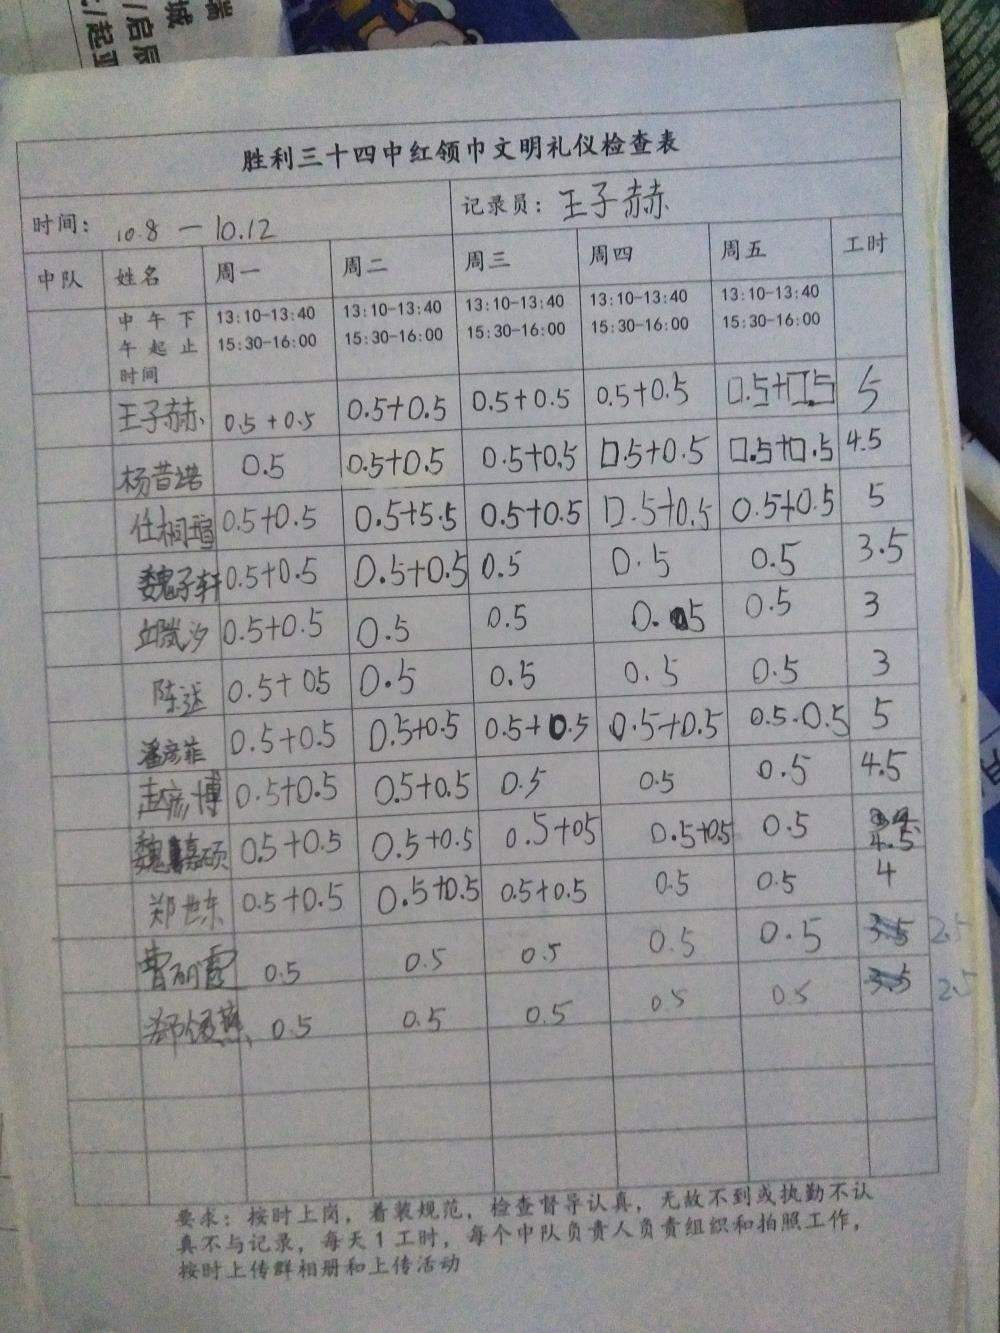 端
城
/启辰
:/起亚
胜利三十四中红领巾文明礼仪检查表
时间： 10.8 — 10.12 记录员： 王子赫
中队 姓名 周一 周二 周三 周四 周五 工时
中午下 13:10-13:40 13:10-13:40 13:10-13:40 13:10-13:40 13:10-13:40
午起止 15:30-16:00 15:30-16:00 15:30-16:00 15:30-16:00 15:30-16:00
时间
王子赫 0.5+0.5 0.5+0.5 0.5+0.5 0.5+0.5 0.5+0.5 5
杨昔 0.5 0.5+0.5 0.5+0.5 0.5+0.5 0.5+0.5 4.5
任桐瑄 0.5+0.5 0.5+5.5 0.5+0.5 0.5+0.5 0.5+0.5 5
魏子轩 0.5+0.5 0.5+0.5 0.5 0.5 0.5 3.5
汐 0.5+0.5 0.5 0.5 0.5 0.5 3
陈达 0.5+05 0.5 0.5 0.5 0.5 3
潘彦菲 0.5+0.5 0.5+0.5 0.5+0.5 0.5+0.5 0.5.0.5 5
孟彦博 0.5+0.5 0.5+0.5 0.5 0.5 0.5 4.5
魏嘉硕 0.5+0.5 0.5+0.5 0.5+05 0.5+0.5 0.5 4.5
郑世东 0.5+0.5 0.5+0.5 0.5+0.5 0.5 0.5 4
曹雨霞 0.5 0.5 0.5 0.5 0.5 3.5 2.5
郑燕 0.5 0.5 0.5 0.5 0.5 3.5 2.5
要求：按时上岗，着装规范，检查督导认真，无故不到或执勤不认
真不与记录，每天1工时，每个中队负责人负责组织和拍照工作，
按时上传群相册和上传活动